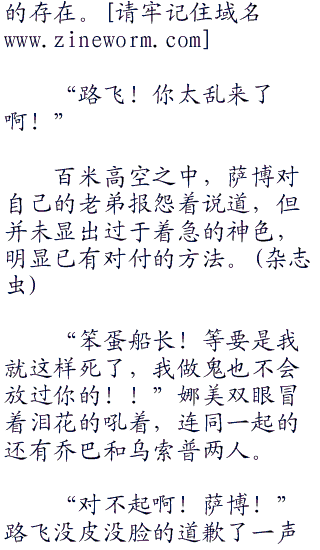 的存在。[请牢记住域名
www.zineworm.com]
“路飞！你太乱来了
啊！”
百米高空之中，萨博对
自己的老弟报怨着说道，但
并未显出过于着急的神色，
明显已有对付的方法。(杂志
虫)
“笨蛋船长！等要是我
就这样死了，我做鬼也不会
放过你的！！”娜美双眼冒
着泪花的吼着，连同一起的
还有乔巴和乌索普两人。
“对不起啊！萨博！”
路飞没皮没脸的道歉了一声